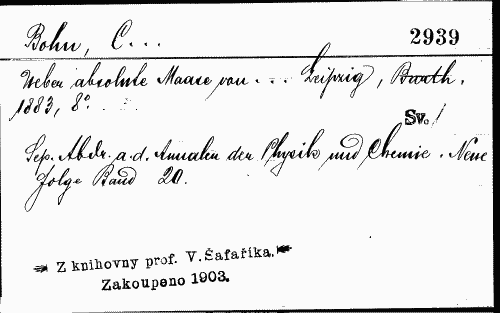 Bohn, C...
2939
Ueber absolute Maase von ... Leipzig, Barth.
1883, 8°. . .
Sv. /
Sep. Abdr. a. d. Annalen der Physik und Chemie. Neue
Folge Band 20.
Z knihovny prof. V. Šafaříka.
Zakoupeno 1903.